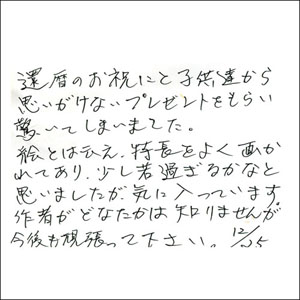 還暦のお祝にと子供達から
思いがけないプレゼントをもらい
驚いてしまいました。
絵とはいえ、特長をよく画か
れてあり、少し若過ぎるかなと
思いましたが、気に入っています。
作者がどなたかは知りませんが
今後も頑張って下さい。12/25